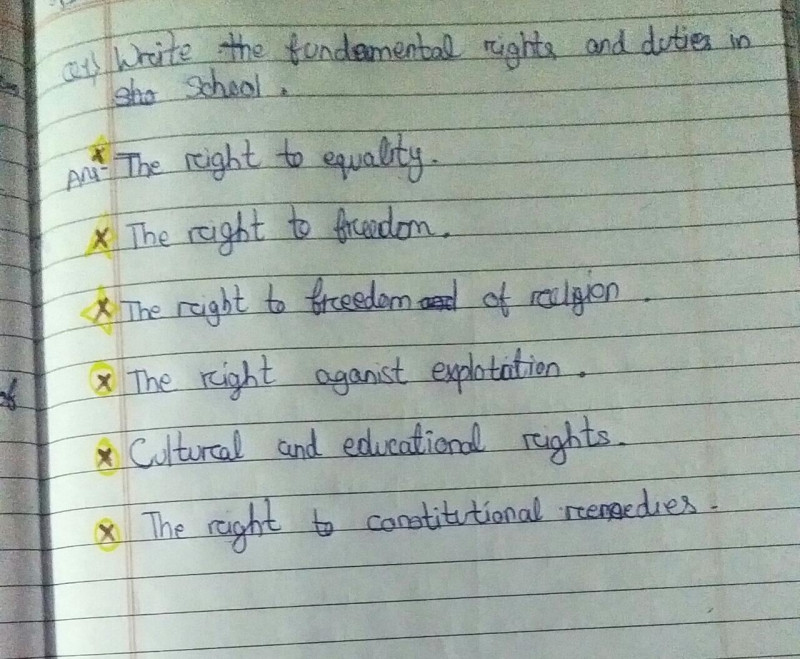 Q1) Write the fundamental rights and duties in
sho School.
Ans- x The right to equality.
x The right to freedom.
x The right to freedom and of realgion.
x The right aganist explotation.
x Cultural and educational rights.
x The right to constitutional remedies.